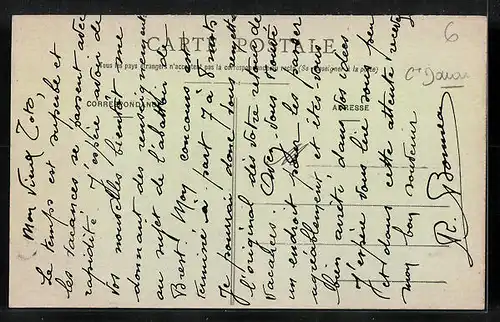 CARTE POSTALE
Tous les pays étrangers n'acceptent pas la correspondance au recto (Se renseigner à la poste)
CORRESPONDANCE
ADRESSE
6
Mon Vieux Toto,
Le temps est superbe et
les vacances se passent avec
rapidité. J'espère avoir de
vos nouvelles bientôt me
donnant des renseignements
au sujet de
Brest. Mon concours est
terminé à part 7 à 8 mots
Je pourrai donc vous remettre
l'original dès votre retour de
vacances. vous trouvé
un endroit pour les passer
agréablement et êtes-vous
bien arrêté dans vos idées
J'espère vous lire sous peu
et dans cette attente, recevez
mon bon souvenir
R. Bonneau